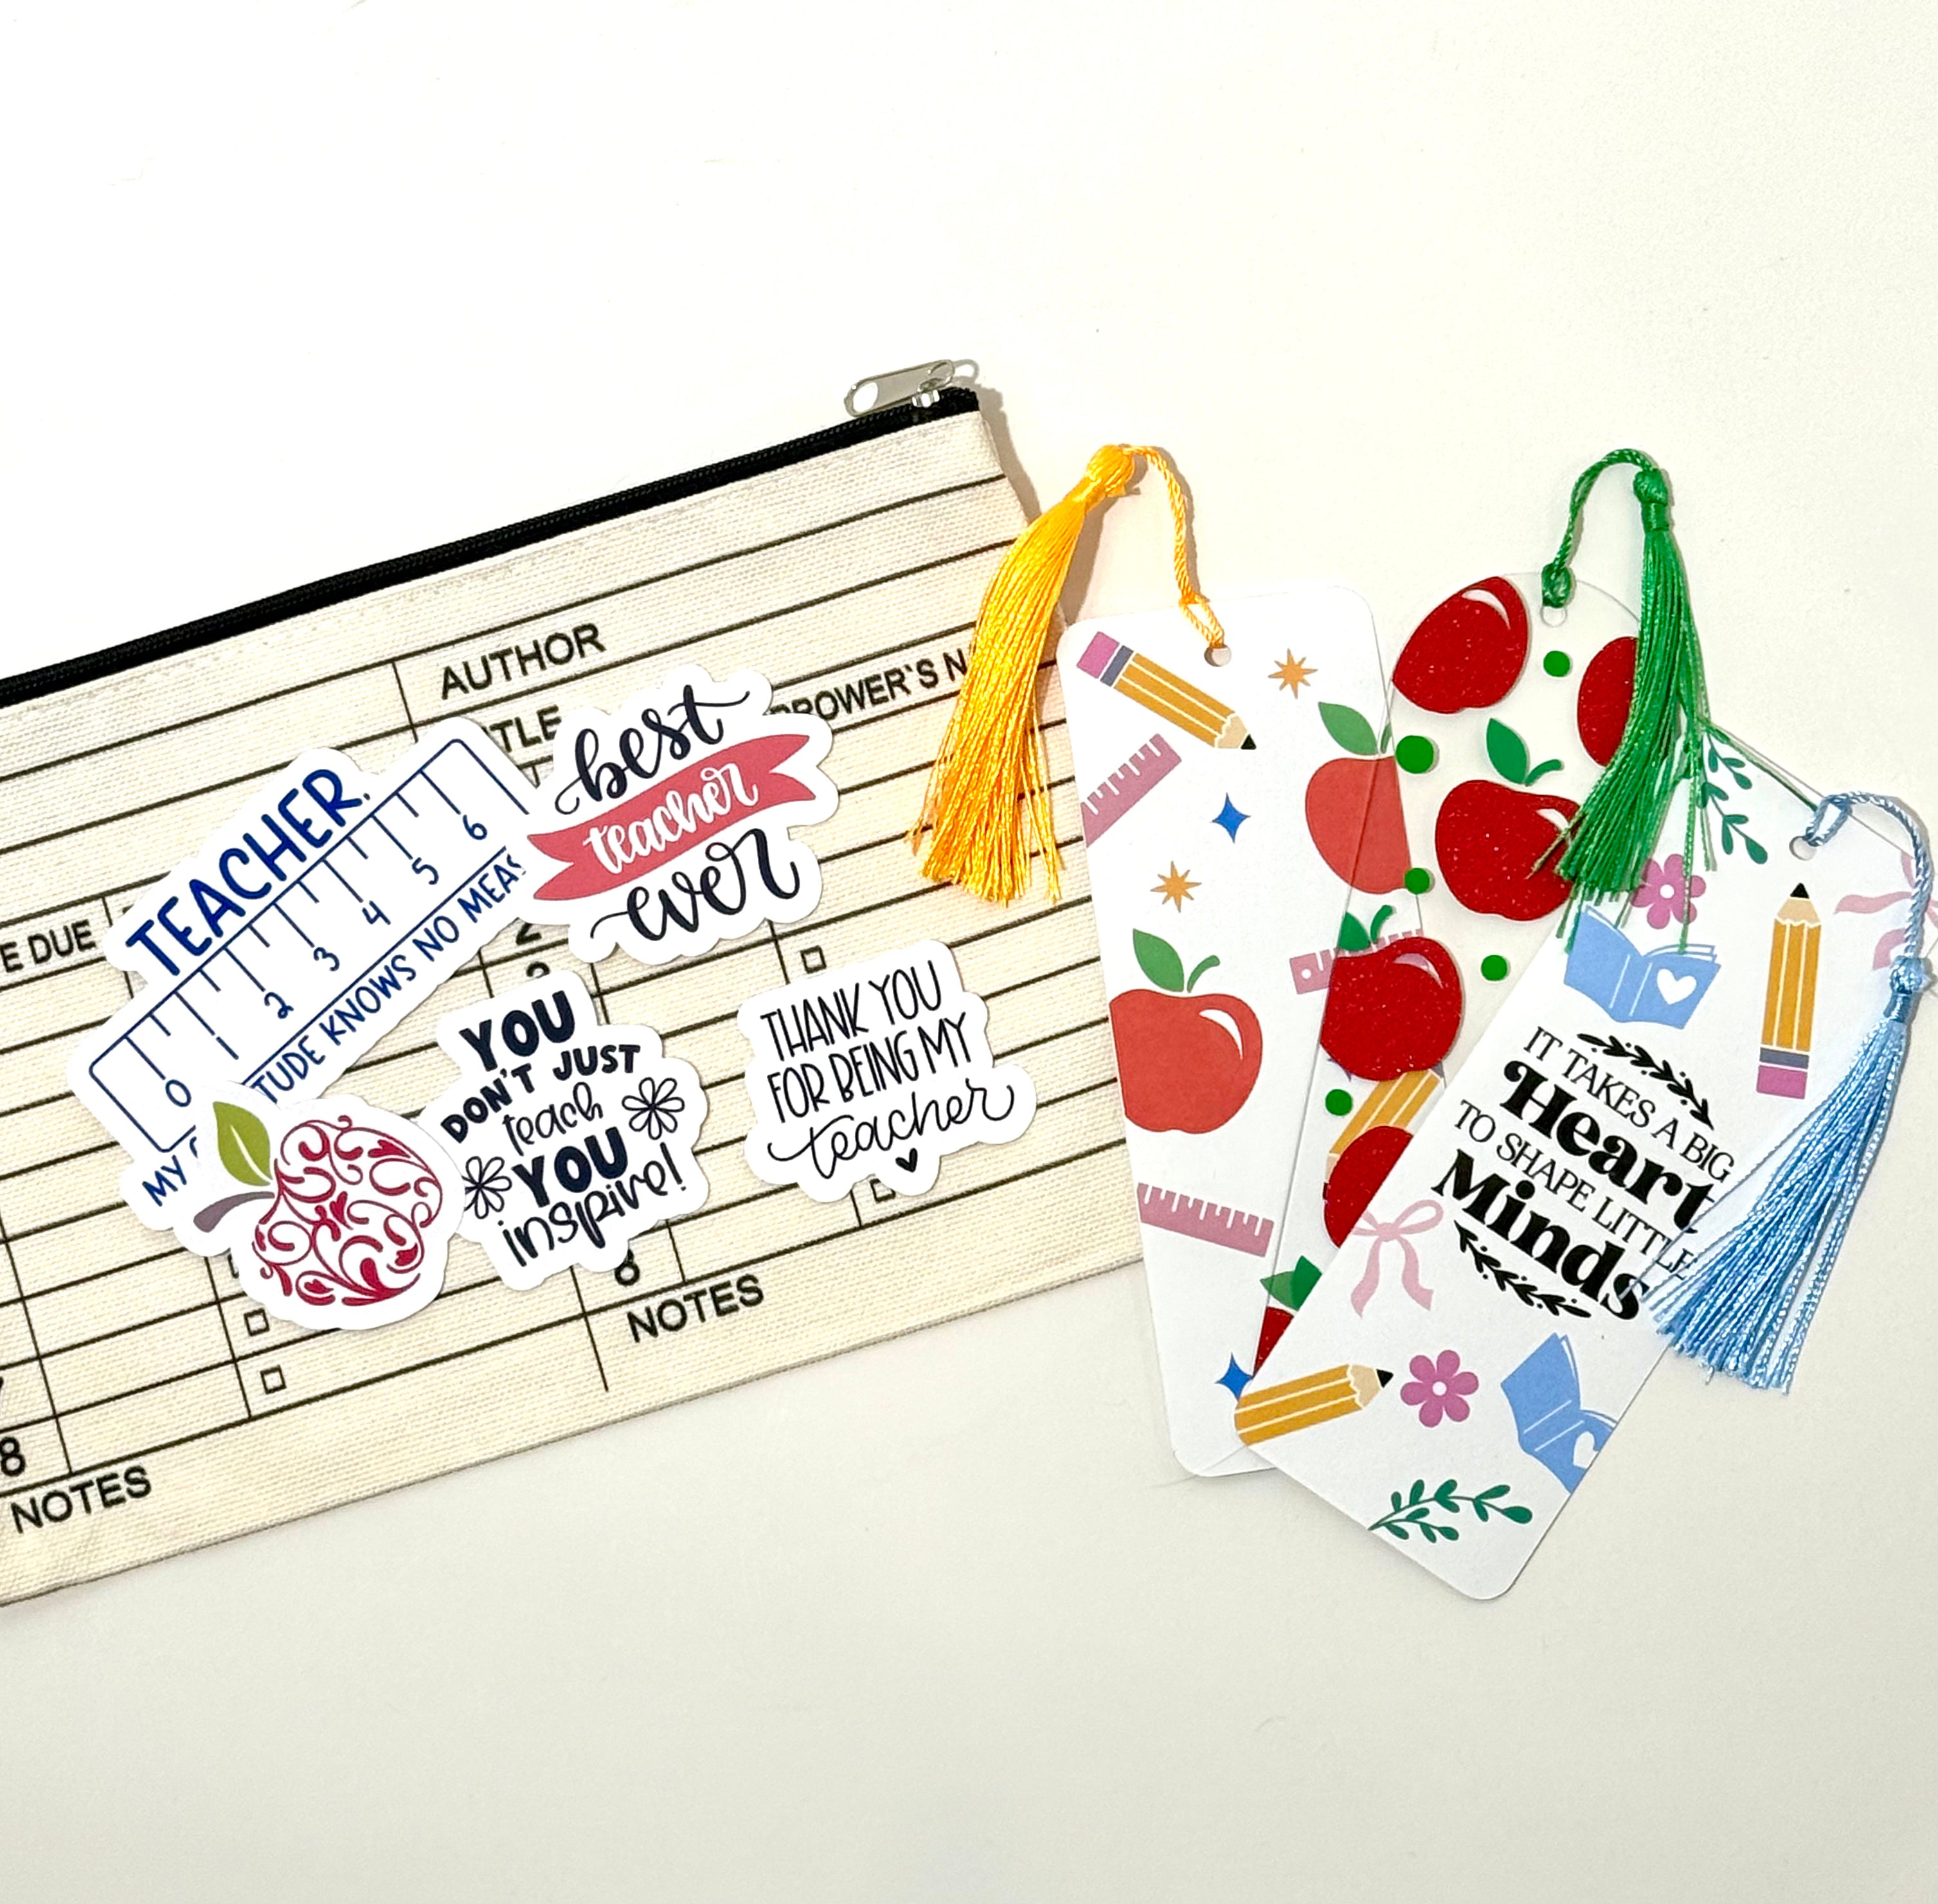 AUTHOR
TEACHER,
0 1 2 3 4 5 6
MY
TUDE KNOWS NO MEAS
best
teacher
ever
E DUE
YOU
DON'T JUST
teach
YOU
inspire!
THANK YOU
FOR BEING MY
teacher
8
NOTES
8
NOTES
IT TAKES A BIG
Heart
TO SHAPE LITTLE
Minds